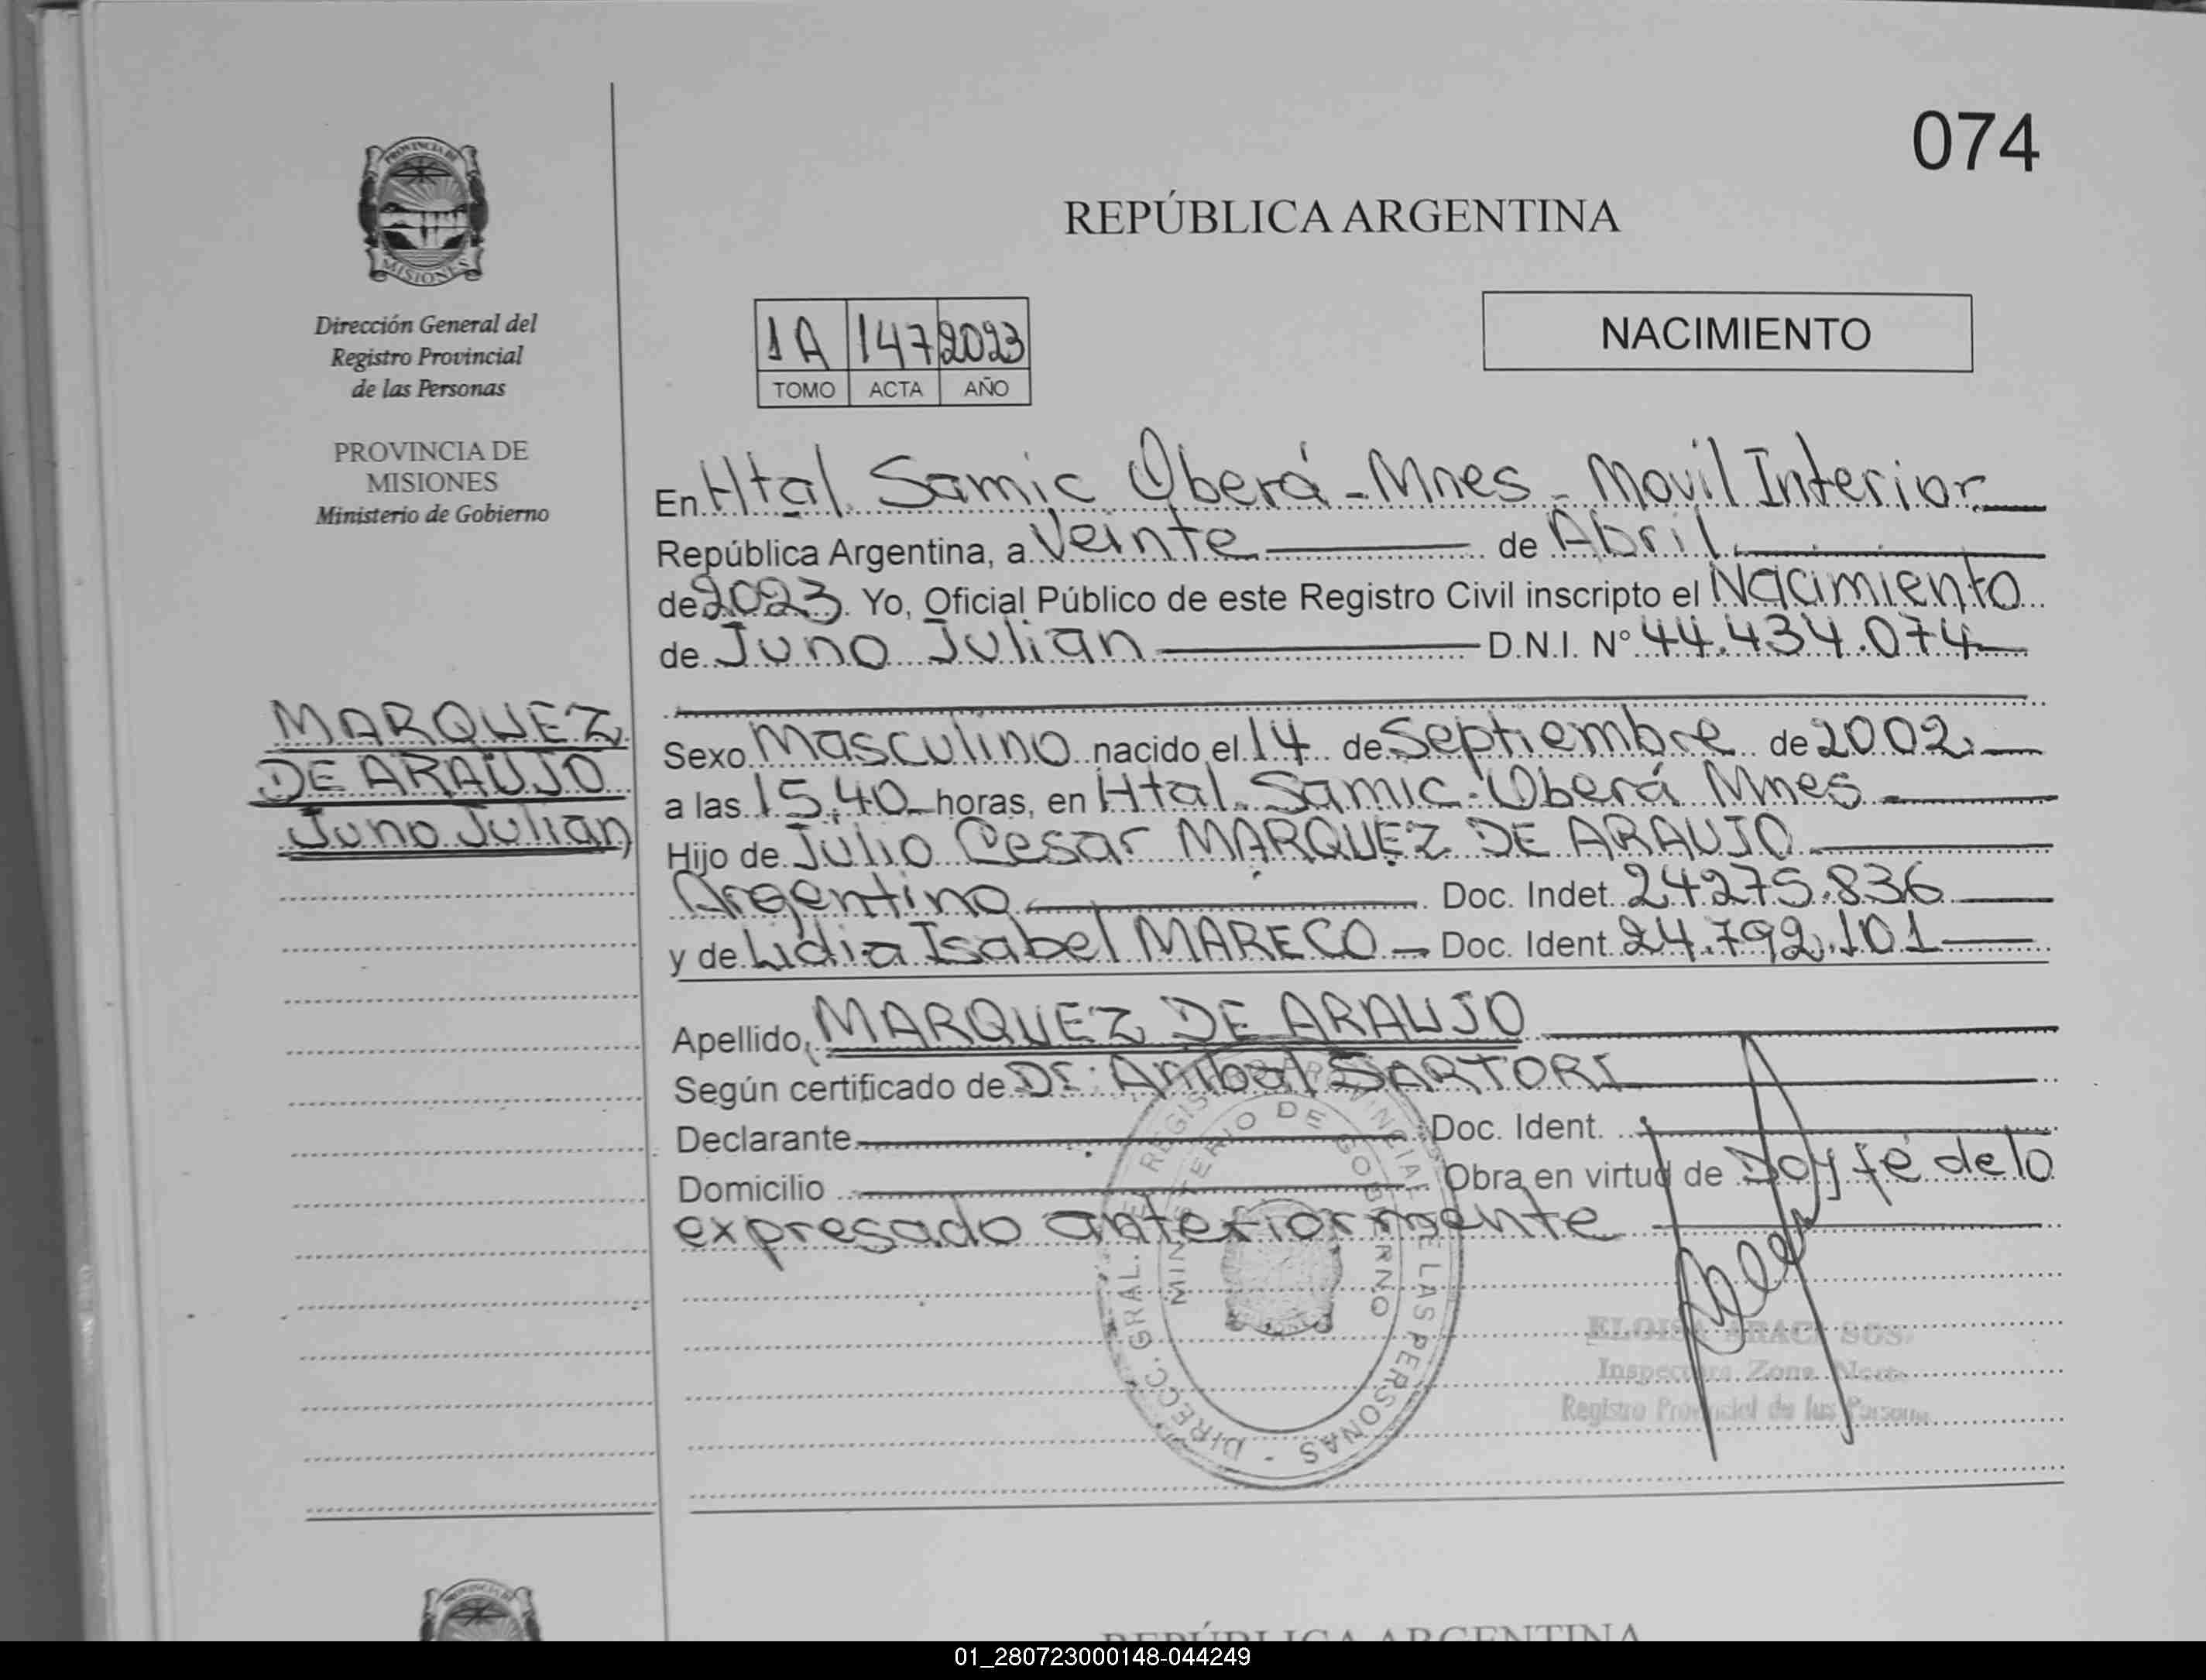 074
PROVINCIA DE
MISIONES
Dirección General del
Registro Provincial
de las Personas
PROVINCIA DE
MISIONES
Ministerio de Gobierno
MARQUEZ
DE ARAUJO
Juno Julian
REPÚBLICA ARGENTINA
NACIMIENTO
1A 147 2023
TOMO ACTA AÑO
En Htal. Samic Oberá - Mnes - Movil Interior
República Argentina, a Veinte de Abril
de 2023. Yo, Oficial Público de este Registro Civil inscripto el Nacimiento
de Juno Julian D.N.I. Nº 44.434.074
Sexo Masculino nacido el 14 de Septiembre de 2002.
a las 15,40 horas, en Htal. Samic-Oberá Mnes
Hijo de Julio Cesar MARQUEZ DE ARAUJO
Argentino Doc. Indet. 24275.836
y de Lidia Isabel MARECO Doc. Ident. 24.792.101
Apellido, MARQUEZ DE ARAUJO
Según certificado de Dr. Anibal SARTORI
Declarante Doc. Ident.
Domicilio Obra en virtud de Doy fé de lo
expresado anteriormente
DIRECC. GRAL. REGIS PERSONAS
MINISTERIO DE GOBIERNO
ELOISA ARACI SOS
Inspectora Zona Norte
Registro Provincial de las Personas
REPÚBLICA ARGENTINA
01_280723000148-044249